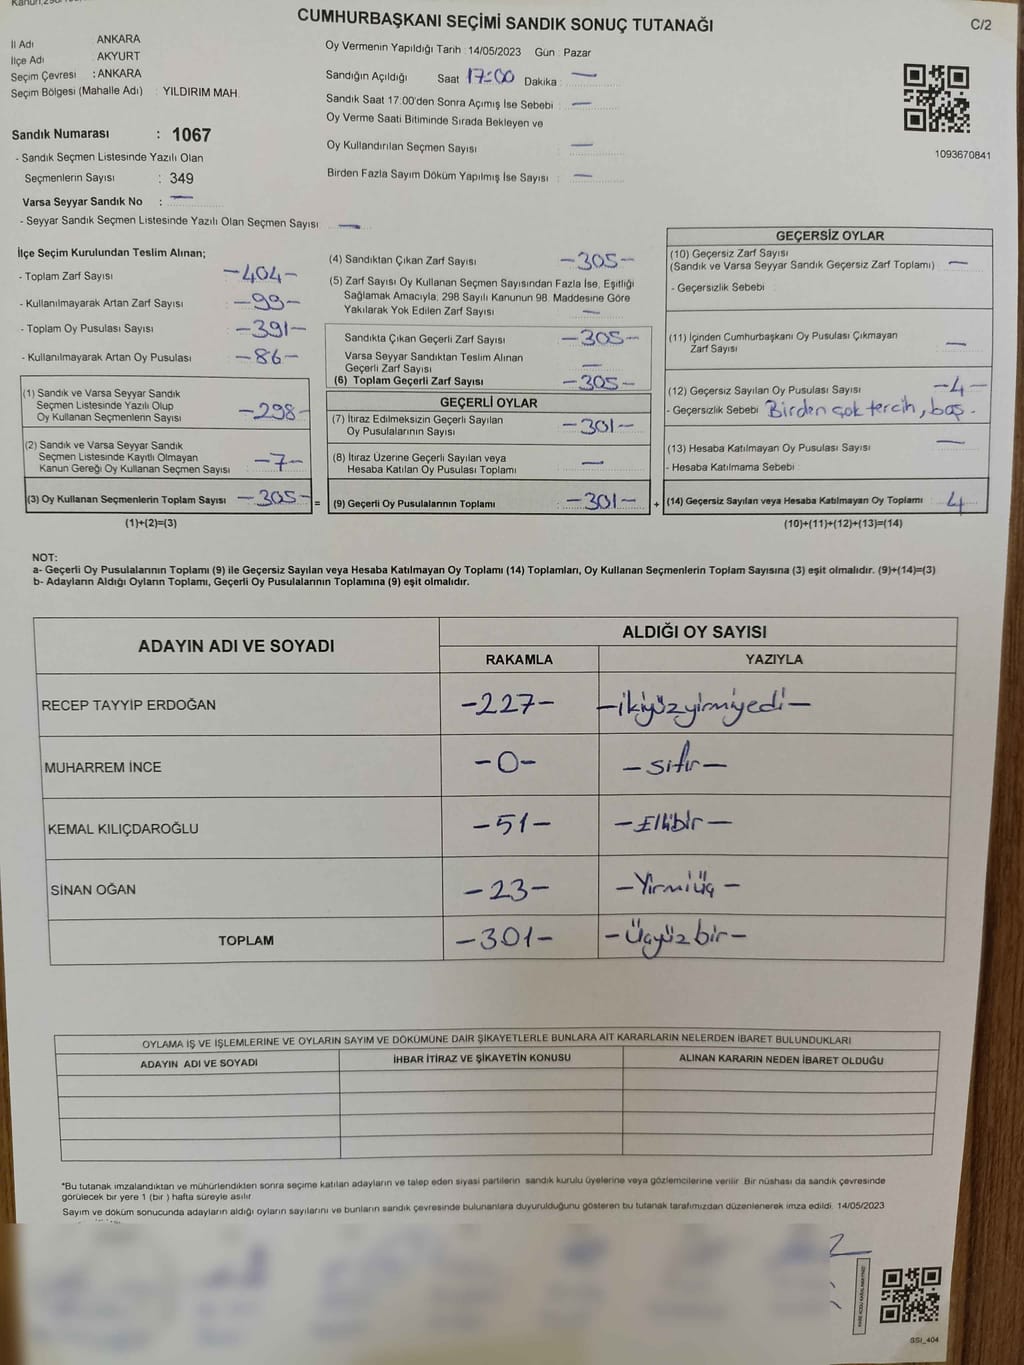 CUMHURBAŞKANI SEÇİMİ SANDIK SONUÇ TUTANAĞI
C/2
İl Adı ANKARA
İlçe Adı AKYURT
Seçim Çevresi : ANKARA
Seçim Bölgesi (Mahalle Adı) : YILDIRIM MAH.
Sandık Numarası : 1067
- Sandık Seçmen Listesinde Yazılı Olan
Seçmenlerin Sayısı : 349
Varsa Seyyar Sandık No : —
- Seyyar Sandık Seçmen Listesinde Yazılı Olan Seçmen Sayısı —
Oy Vermenin Yapıldığı Tarih : 14/05/2023 Gün : Pazar
Sandığın Açıldığı Saat 17:00 Dakika : —
Sandık Saat 17:00'den Sonra Açımış İse Sebebi : —
Oy Verme Saati Bitiminde Sırada Bekleyen ve
Oy Kullandırılan Seçmen Sayısı —
Birden Fazla Sayım Döküm Yapılmış İse Sayısı : —
1093670841
İlçe Seçim Kurulundan Teslim Alınan;
- Toplam Zarf Sayısı -404-
- Kullanılmayarak Artan Zarf Sayısı -99-
- Toplam Oy Pusulası Sayısı -391-
- Kullanılmayarak Artan Oy Pusulası -86-
(1) Sandık ve Varsa Seyyar Sandık
Seçmen Listesinde Yazılı Olup
Oy Kullanan Seçmenlerin Sayısı -298-
(2) Sandık ve Varsa Seyyar Sandık
Seçmen Listesinde Kayıtlı Olmayan
Kanun Gereği Oy Kullanan Seçmen Sayısı -7-
(3) Oy Kullanan Seçmenlerin Toplam Sayısı -305- =
(1)+(2)=(3)
(4) Sandıktan Çıkan Zarf Sayısı -305-
(5) Zarf Sayısı Oy Kullanan Seçmen Sayısından Fazla İse, Eşitliği
Sağlamak Amacıyla, 298 Sayılı Kanunun 98. Maddesine Göre
Yakılarak Yok Edilen Zarf Sayısı —
Sandıkta Çıkan Geçerli Zarf Sayısı -305-
Varsa Seyyar Sandıktan Teslim Alınan
Geçerli Zarf Sayısı —
(6) Toplam Geçerli Zarf Sayısı -305-
GEÇERLİ OYLAR
(7) İtiraz Edilmeksizin Geçerli Sayılan
Oy Pusulalarının Sayısı -301-
(8) İtiraz Üzerine Geçerli Sayılan veya
Hesaba Katılan Oy Pusulası Toplamı —
(9) Geçerli Oy Pusulalarının Toplamı -301- +
GEÇERSİZ OYLAR
(10) Geçersiz Zarf Sayısı
(Sandık ve Varsa Seyyar Sandık Geçersiz Zarf Toplamı) —
- Geçersizlik Sebebi
(11) İçinden Cumhurbaşkanı Oy Pusulası Çıkmayan
Zarf Sayısı —
(12) Geçersiz Sayılan Oy Pusulası Sayısı -4-
- Geçersizlik Sebebi Birden çok tercih, boş.
(13) Hesaba Katılmayan Oy Pusulası Sayısı —
- Hesaba Katılmama Sebebi
(14) Geçersiz Sayılan veya Hesaba Katılmayan Oy Toplamı 4
(10)+(11)+(12)+(13)=(14)
NOT:
a- Geçerli Oy Pusulalarının Toplamı (9) ile Geçersiz Sayılan veya Hesaba Katılmayan Oy Toplamı (14) Toplamları, Oy Kullanan Seçmenlerin Toplam Sayısına (3) eşit olmalıdır. (9)+(14)=(3)
b- Adayların Aldığı Oyların Toplamı, Geçerli Oy Pusulalarının Toplamına (9) eşit olmalıdır.
ADAYIN ADI VE SOYADI ALDIĞI OY SAYISI
RAKAMLA YAZIYLA
RECEP TAYYİP ERDOĞAN -227- -ikiyüzyirmiyedi-
MUHARREM İNCE -0- -sıfır-
KEMAL KILIÇDAROĞLU -51- -Ellibir-
SİNAN OĞAN -23- -Yirmiüç-
TOPLAM -301- -Üçyüzbir-
OYLAMA İŞ VE İŞLEMLERİNE VE OYLARIN SAYIM VE DÖKÜMÜNE DAİR ŞİKAYETLERLE BUNLARA AİT KARARLARIN NELERDEN İBARET BULUNDUKLARI
ADAYIN ADI VE SOYADI İHBAR İTİRAZ VE ŞİKAYETİN KONUSU ALINAN KARARIN NEDEN İBARET OLDUĞU
*Bu tutanak imzalandıktan ve mühürlendikten sonra seçime katılan adayların ve talep eden siyasi partilerin sandık kurulu üyelerine veya gözlemcilerine verilir. Bir nüshası da sandık çevresinde
görülecek bir yere 1 (bir) hafta süreyle asılır
Sayım ve döküm sonucunda adayların aldığı oyların sayılarını ve bunların sandık çevresinde bulunanlara duyurulduğunu gösteren bu tutanak tarafımızdan düzenlenerek imza edildi. 14/05/2023
SSİ_404